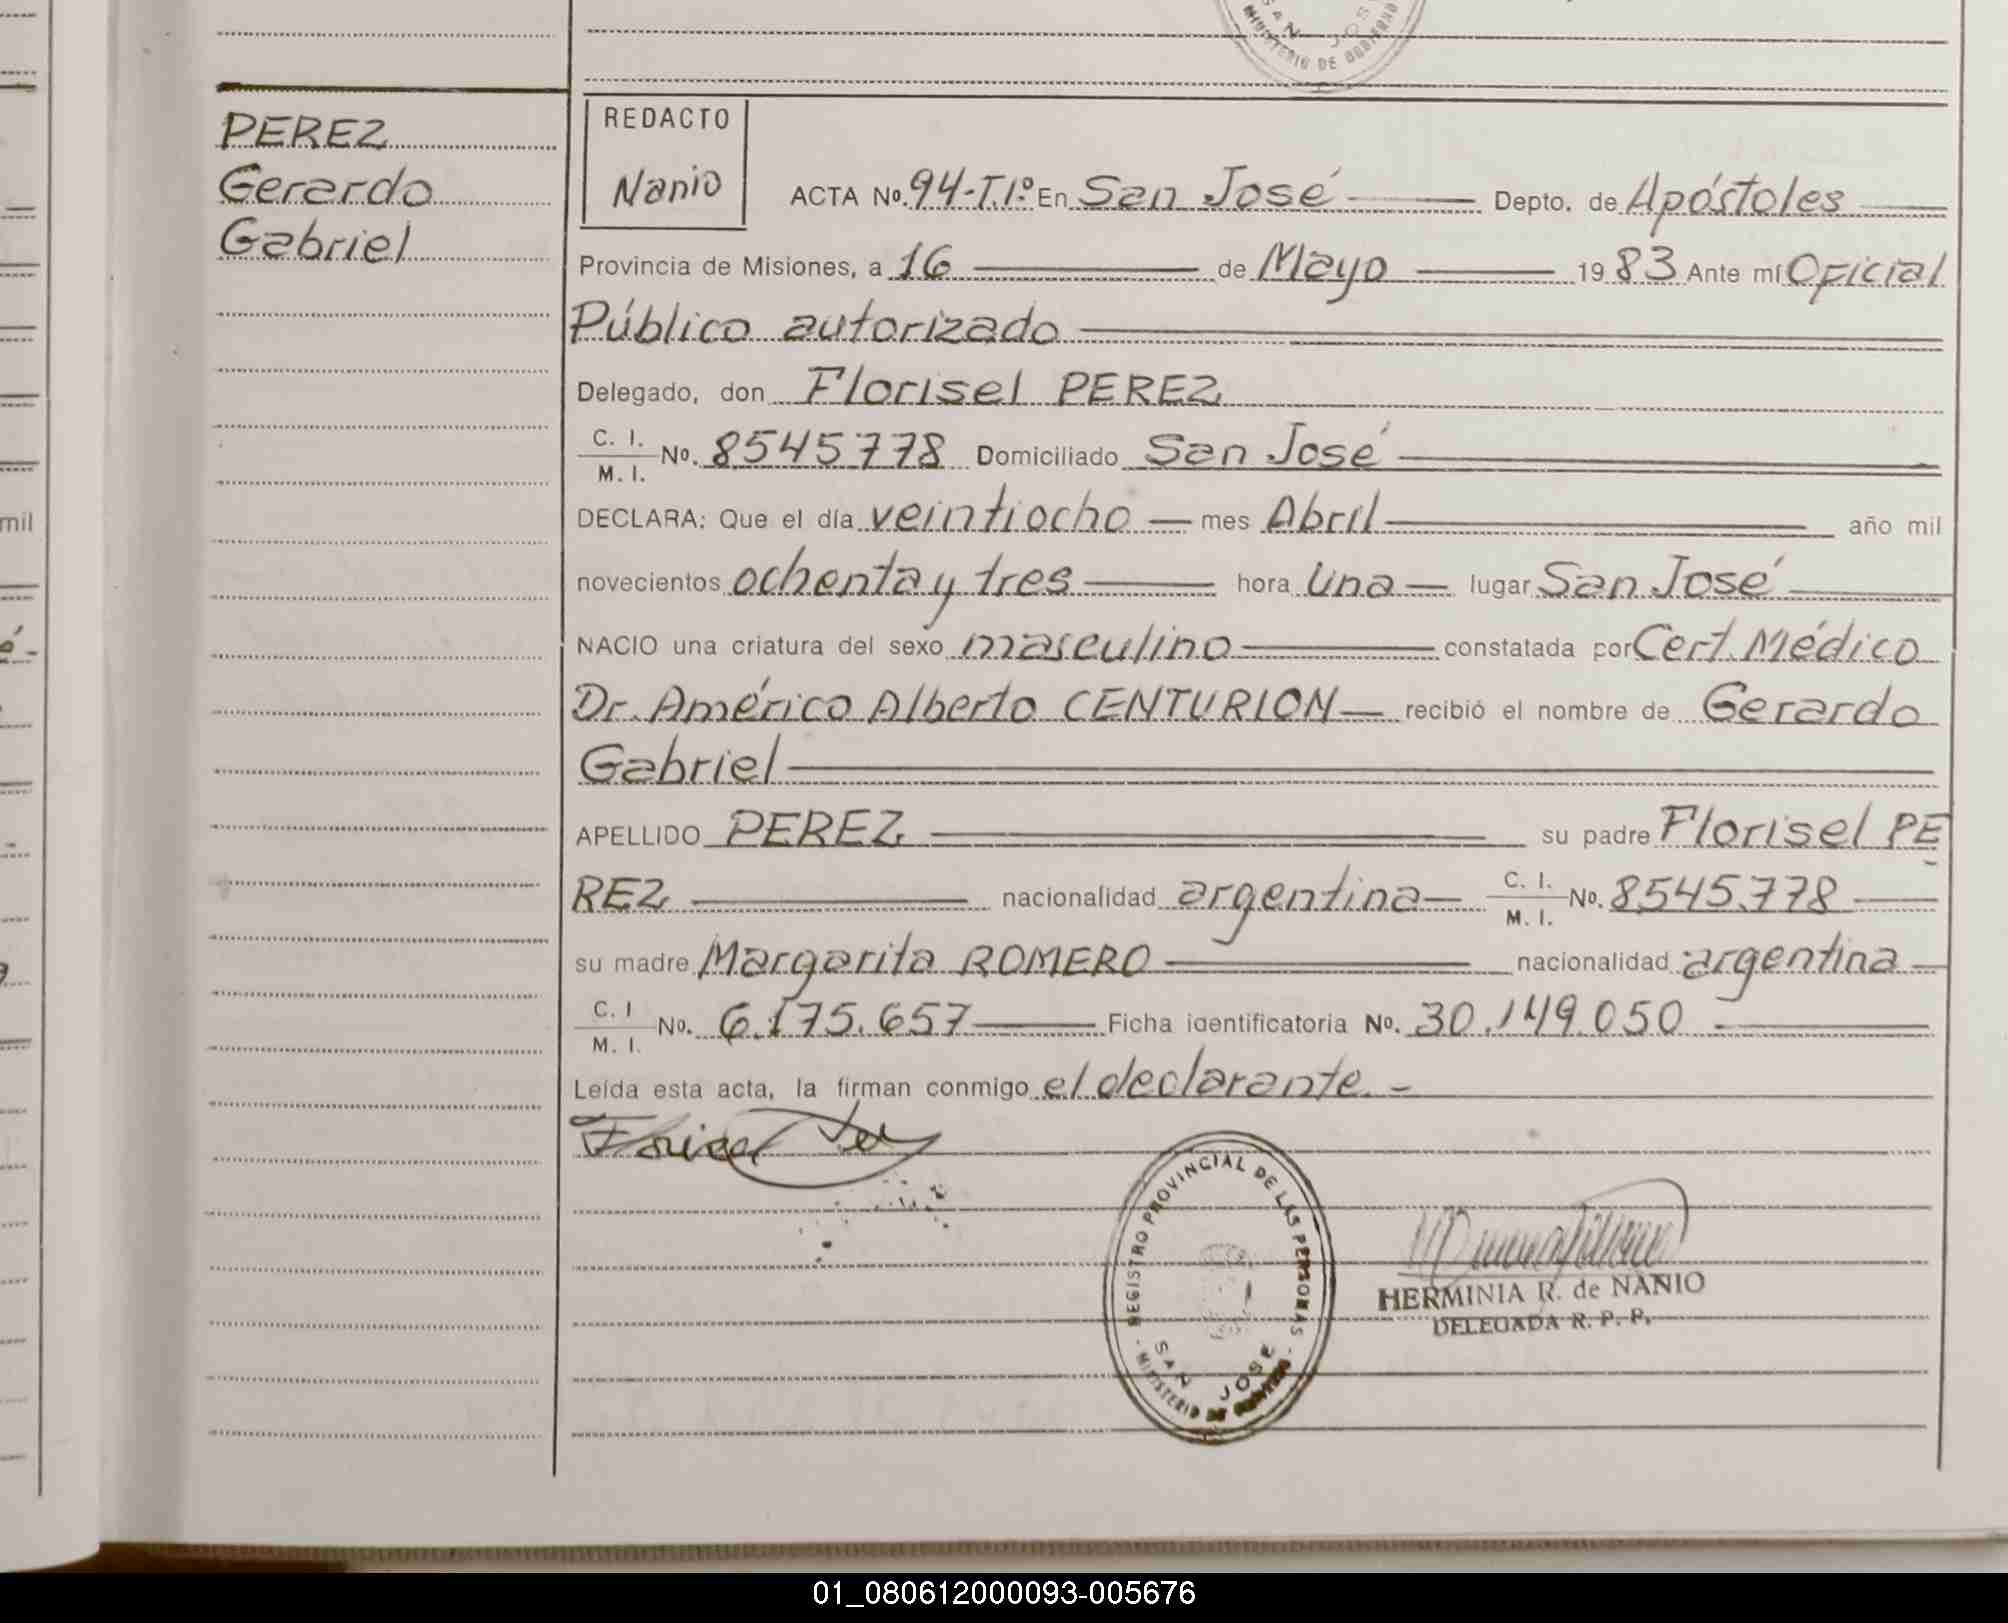 SAN JOSE
MINISTERIO DE GOBIERNO
PEREZ
Gerardo
Gabriel
REDACTO
Nanio
ACTA No. 94-T.1º En San José Depto. de Apóstoles
Provincia de Misiones, a 16 de Mayo 1983 Ante mí Oficial
Público autorizado
Delegado, don Florisel PEREZ
C. I. / M. I. No. 8545778 Domiciliado San José
DECLARA: Que el día veintiocho mes Abril año mil
novecientos ochenta y tres hora una lugar San José
NACIO una criatura del sexo masculino constatada por Cert. Médico
Dr. Américo Alberto CENTURION recibió el nombre de Gerardo
Gabriel
APELLIDO PEREZ su padre Florisel PE
REZ nacionalidad argentina C. I. / M. I. No. 8545.778
su madre Margarita ROMERO nacionalidad argentina
C. I / M. I. No. 6.175.657 Ficha identificatoria No. 30.149.050
Leída esta acta, la firman conmigo el declarante. -
REGISTRO PROVINCIAL DE LAS PERSONAS
SAN JOSE
MINISTERIO DE GOBIERNO
HERMINIA R. de NANIO
DELEGADA R. P. P.
mil
01_080612000093-005676